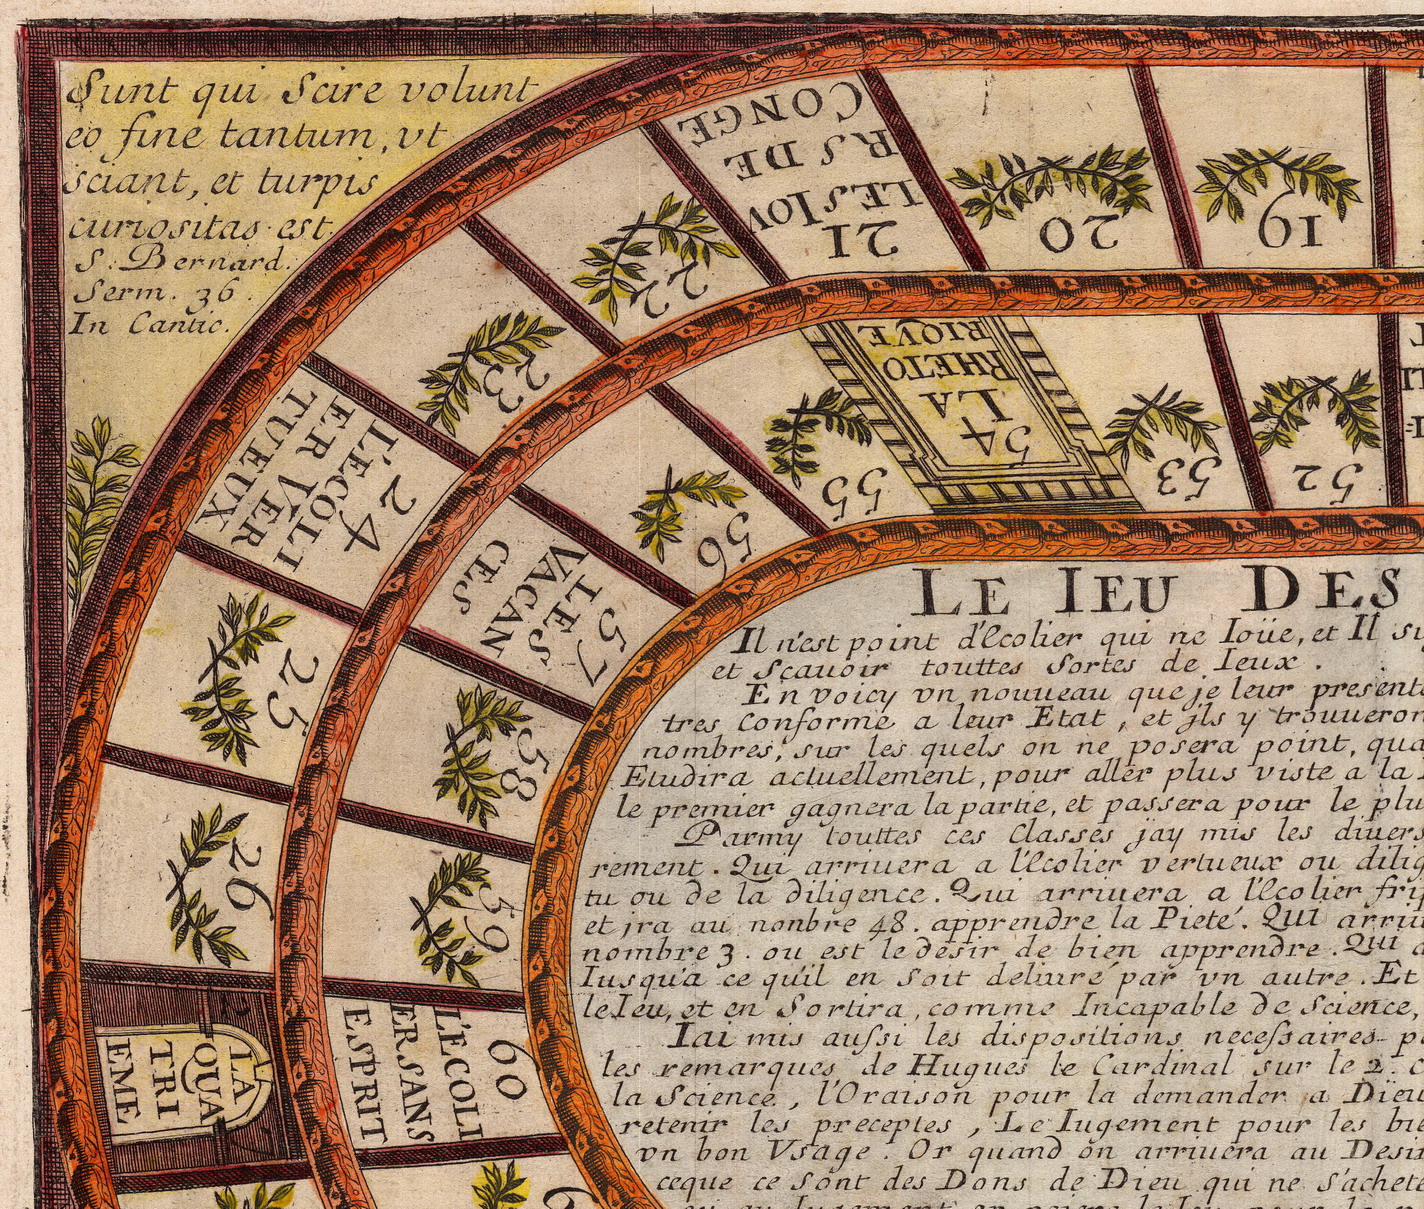 Sunt qui Scire volunt
eo fine tantum, vt
sciant, et turpis
curiositas est.
S. Bernard.
Serm. 36.
In Cantic.
19
20
21
LES IOV
RS DE
CONGE
22
23
24
L'ECOLI
ER VER
TUEUX
25
26
LA
QUA
TRI
EME
52
53
54
LA
RHETO
RIQVE
55
56
57
LES
VACAN
CES
58
59
60
L'ECOLI
ER SANS
ESPRIT
LE IEU DES
Il n'est point d'Ecolier qui ne Ioüe, et Il
et Scauoir touttes Sortes de Ieux.
En voicy vn nouueau que je leur
tres Conforme a leur Etat, et jls y
nombres, sur les quels on ne posera point,
Etudira actuellement, pour aller plus viste a la
le premier gagnera la partie, et passera pour le
Parmy touttes ces Classes jay mis les
rement. Qui arriuera a l'Ecolier vertueux ou
tu ou de la diligence. Qui arriuera a l'Ecolier
et jra au nonbre 48. apprendre la Pieté. Qui
nombre 3. ou est le desir de bien apprendre. Qui
Iusqu'a ce qu'il en Soit deliuré par vn autre. Et
le Ieu, et en Sortira, comme Incapable de Science,
Iai mis aussi les dispositions necessaires
les remarques de Hugues le Cardinal sur le 2.
la Science, l'Oraison pour la demander a Dieu
retenir les preceptes, Le Iugement pour les
vn bon Vsage. Or quand on arriuera au
ceque ce Sont des Dons de Dieu qui ne